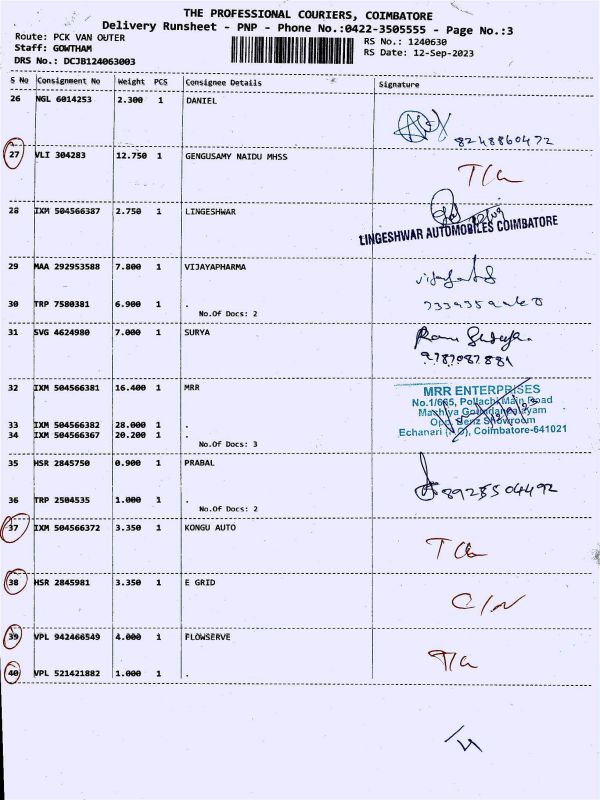 THE PROFESSIONAL COURIERS, COIMBATORE
Delivery Runsheet - PNP - Phone No.:0422-3505555 - Page No.:3
Route: PCK VAN OUTER
RS No.: 1240630
Staff: GOWTHAM
RS Date: 12-Sep-2023
DRS No.: DCJB124063003
S No Consignment No Weight PCS Consignee Details Signature
26 NGL 6014253 2.300 1 DANIEL
8248860472
27 VLI 304283 12.750 1 GENGUSAMY NAIDU MHSS
28 IXM 504566387 2.750 1 LINGESHWAR
LINGESHWAR AUTOMOBILES COIMBATORE
29 MAA 292953588 7.800 1 VIJAYAPHARMA
30 TRP 7580381 6.900 1 .
No.Of Docs: 2
31 SVG 4624980 7.000 1 SURYA
9787087881
32 IXM 504566381 16.400 1 MRR
MRR ENTERPRISES
No.1/665, Pollachi Main Road
33 IXM 504566382 28.000 1 .
Opp. Benz Showroom
34 IXM 504566367 20.200 1 .
Echanari (PO), Coimbatore-641021
No.Of Docs: 3
35 HSR 2845750 0.900 1 PRABAL
8925504492
36 TRP 2504535 1.000 1 .
No.Of Docs: 2
37 IXM 504566372 3.350 1 KONGU AUTO
38 HSR 2845981 3.350 1 E GRID
C/N
39 VPL 942466549 4.000 1 FLOWSERVE
40 VPL 521421882 1.000 1 .